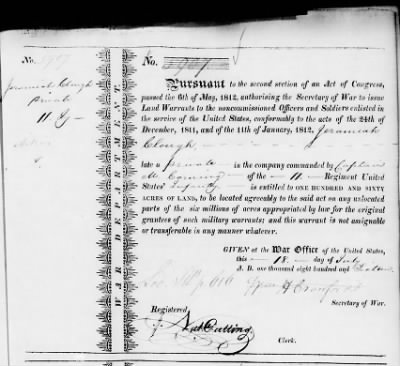 No. 1927
Jeremiah Clough
Private
11 Rg
WAR DEPARTMENT.
No. 1927
Pursuant to the second section of an Act of Congress,
passed the 6th of May, 1812, authorising the Secretary of War to issue
Land Warrants to the noncommissioned Officers and Soldiers enlisted in
the service of the United States, conformably to the acts of the 24th of
December, 1811, and of the 11th of January, 1812, Jeremiah
Clough
late a private in the company commanded by Captain
of the 11 Regiment United
States' Infantry is entitled to ONE HUNDRED AND SIXTY
ACRES OF LAND, to be located agreeably to the said act on any unlocated
parts of the six millions of acres appropriated by law for the original
grantees of such military warrants; and this warrant is not assignable
or transferable in any manner whatever.
GIVEN at the War Office of the United States,
this 18 day of July
A. D. one thousand eight hundred and
Secretary of War.
Registered
Nat Cutting
Clerk.